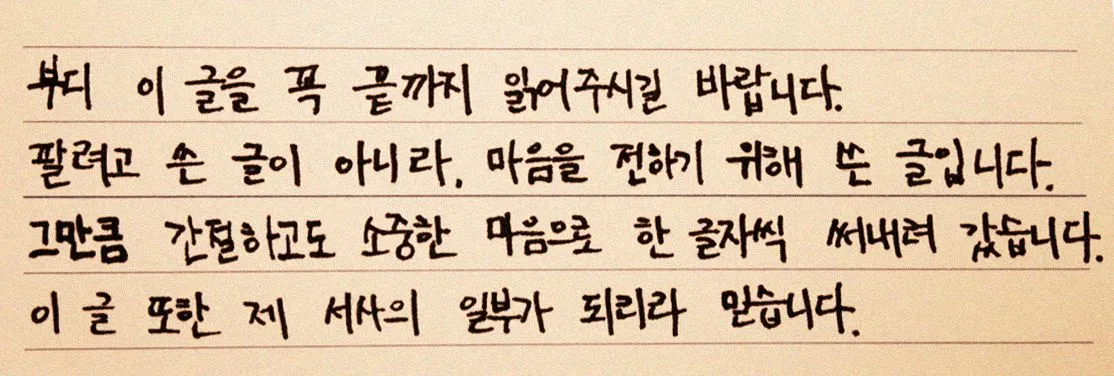 부디 이 글을 꼭 끝까지 읽어주시길 바랍니다.
팔려고 쓴 글이 아니라, 마음을 전하기 위해 쓴 글입니다.
그만큼 간절하고도 소중한 마음으로 한 글자씩 써내려 갔습니다.
이 글 또한 제 서사의 일부가 되리라 믿습니다.